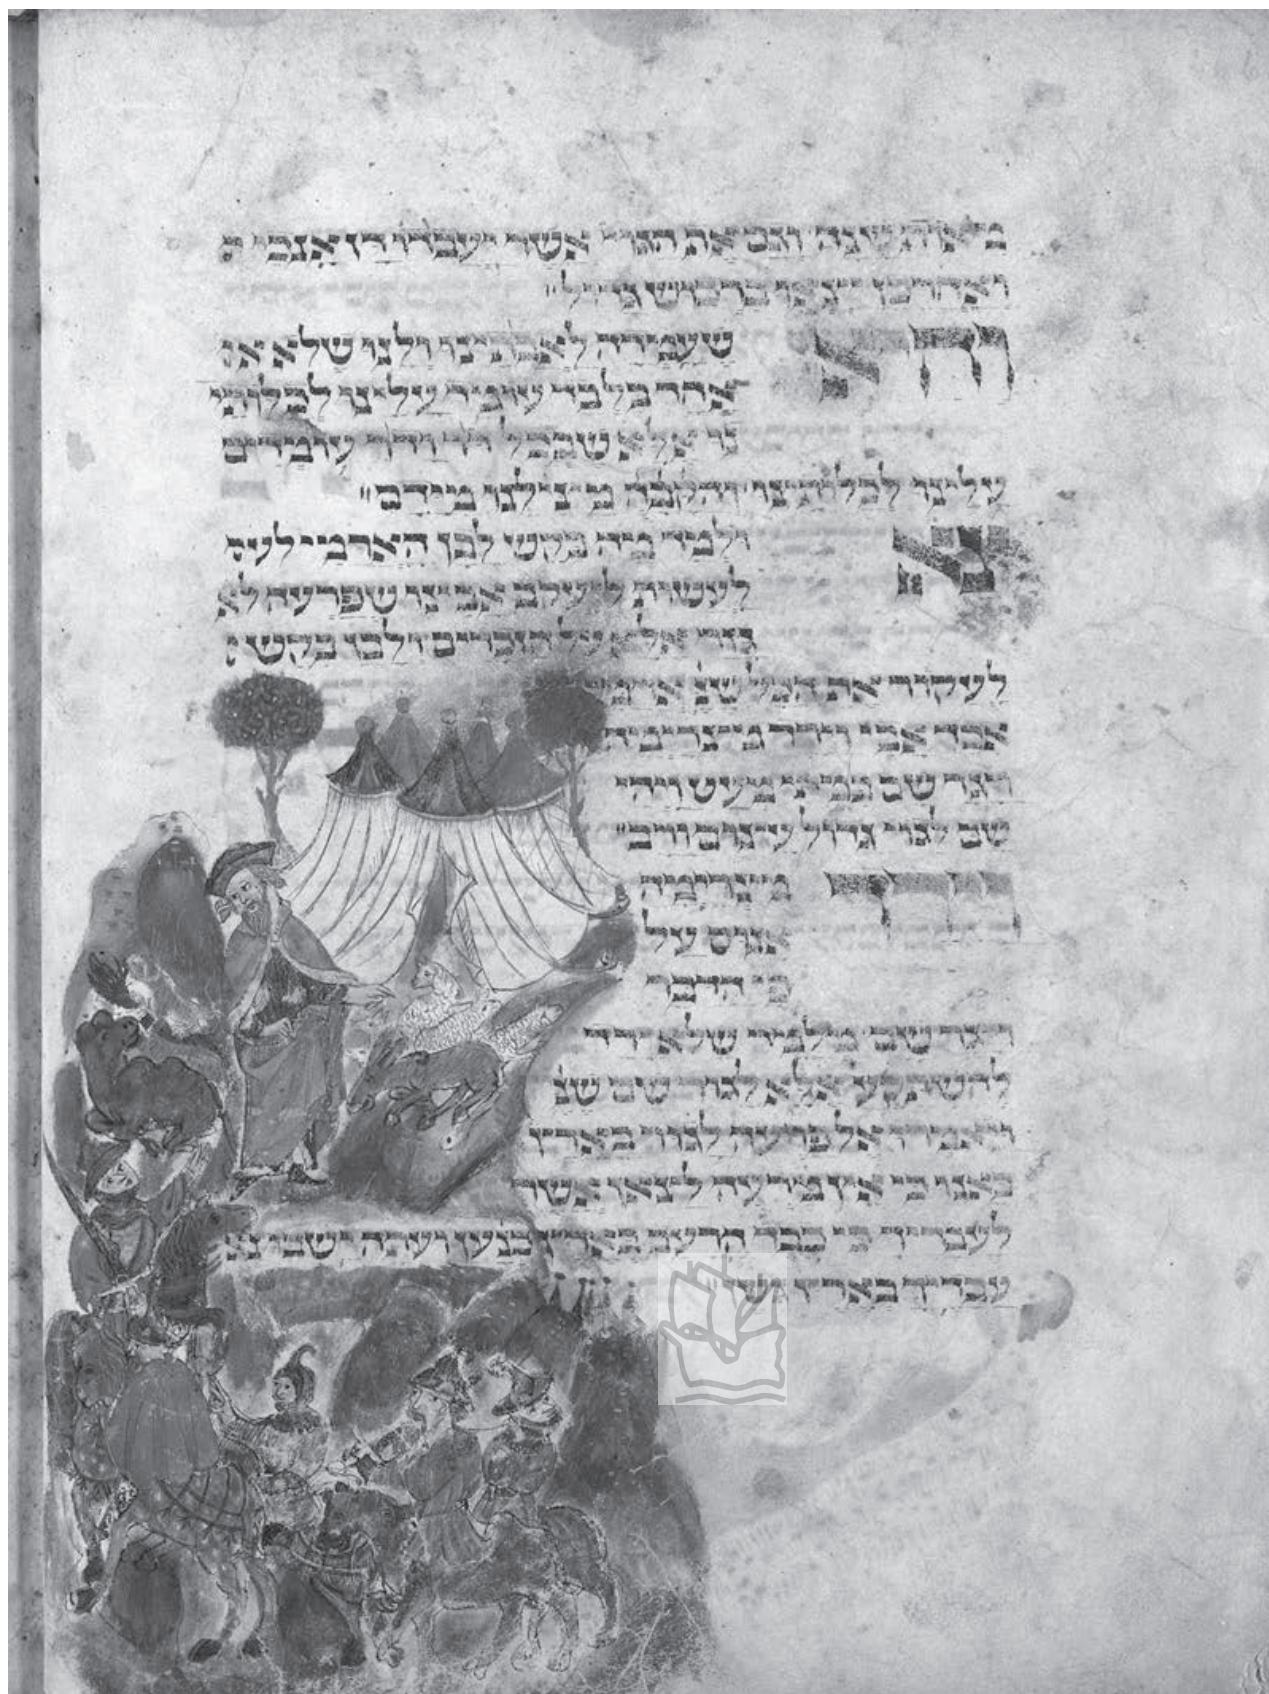 מאות שנה וגם את הגוי אשר יעבדו דן אנכי
ואחרי כן יצאו ברכוש גדול
והיא שעמדה לאבתינו ולנו שלא
אחד בלבד עומד עלינו לכלותי
נו אלא שבכל דור ודור עומדים
עלינו לכלותינו והקבה מצילנו מידם
צא ולמד מה בקש לבן הארמי
לעשות ליעקב אבינו שפרעה לא
גזר אלא על הזכרים ולבן בקש
לעקור את הכל שנ
אבד אבי וירד מצרימה
ויגר שם במתי מעט ויהי
שם לגוי גדול עצום ורב
וירד מצרימה
אנוס על
פי הדבר
ויגר שם מלמד שלא ירד
להשתקע אלא לגור שם שנ
ויאמרו אל פרעה לגור בארץ
באנו כי אין מרעה לצאן אשר
לעבדיך כי כבד הרעב בארץ כנען ועתה ישבו נא
עבדיך בארץ גשן